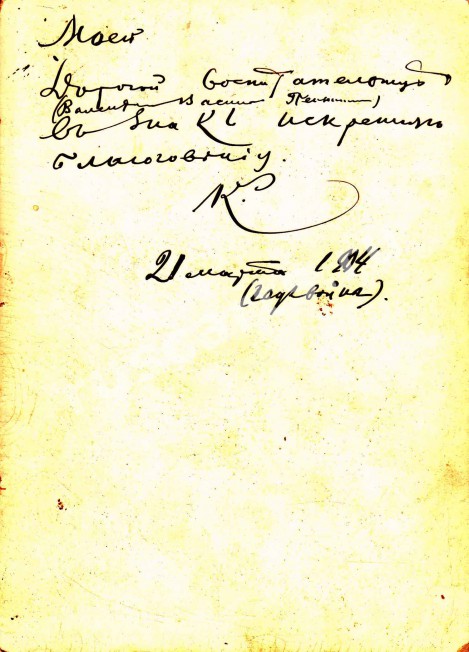 Моей
Дорогой воспитательнице
(Валент Васил
въ знакъ искренняго
благоговѣнія.
К.
21 марта 1904
(годъ войны).